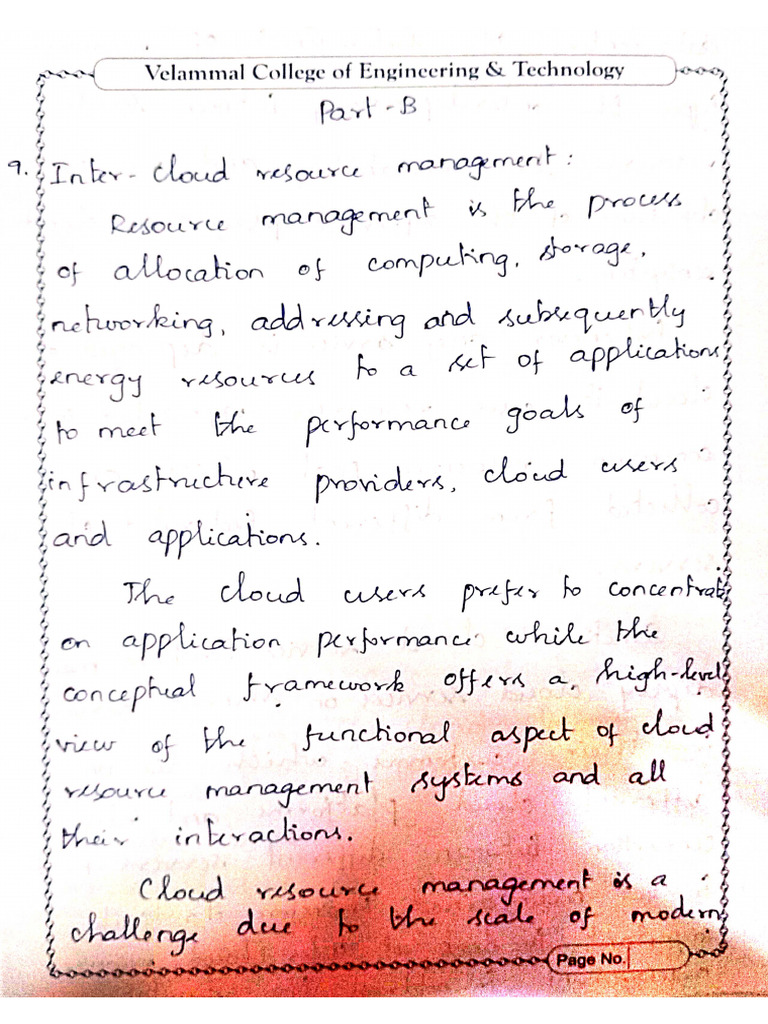 Velammal College of Engineering & Technology
Part-B
9. Inter-Cloud resource management:
Resource management is the process
of allocation of computing, storage,
networking, addressing and subsequently
energy resources to a set of applications,
to meet the performance goals of
infrastructure providers, cloud users
and applications.
The cloud users prefer to concentrat
on application performance while the
conceptual framework offers a high-level
view of the functional aspect of cloud
resource management systems and all
their interactions.
Cloud resource management is a
challenge due to the scale of modern
Page No.